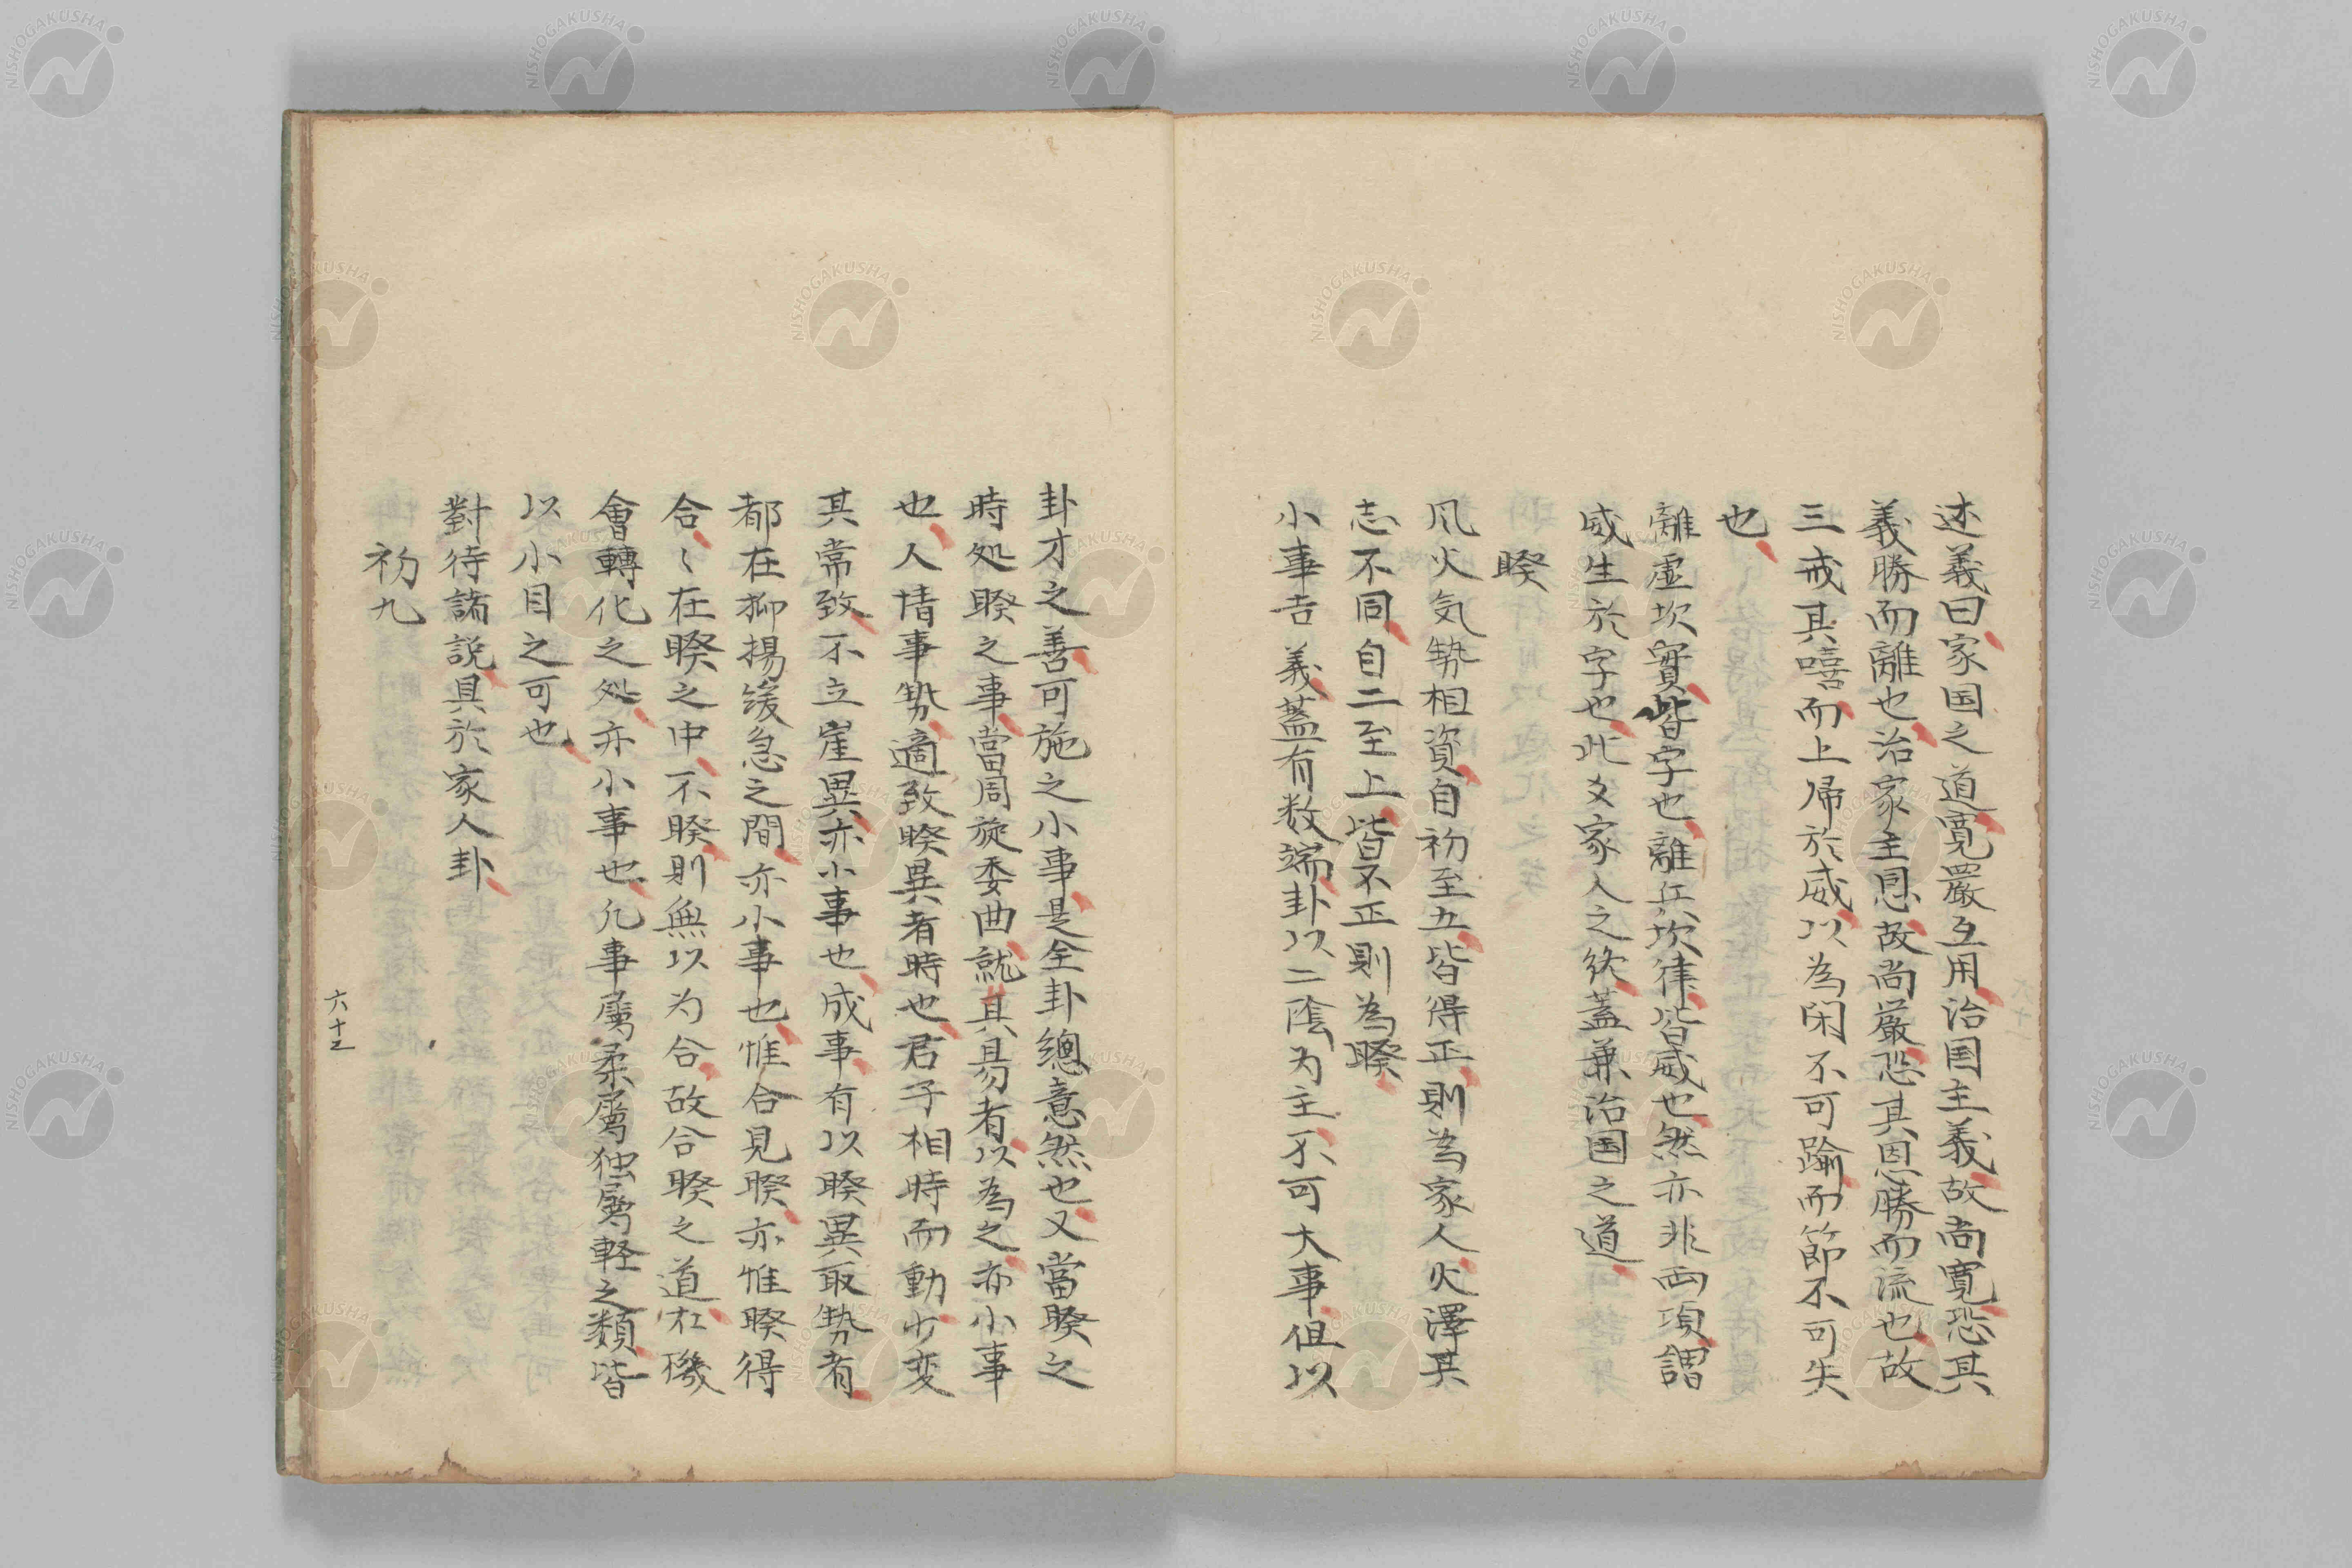 述義曰家国之道寛嚴互用治国主義故尚寛恐其
義勝而離也治家主恩故尚厳恐其恩勝而流也故
三戒其嘻而上帰於威以為閑不可踰而節不可失
也
離虚坎實皆字也離兵坎律皆威也然亦非両項謂
威生於字也此爻家人之終蓋兼治国之道
睽
风火気勢相資自初至五皆得正則為家人火澤其
志不同自二至上皆不正則為睽
小事吉義蓋有数端卦以二陰为主不可大事但以
卦才之善可施之小事是全卦總意然也又當睽之
時処睽之事當周旋委曲就其易者以為之亦小事
也人情事勢適致睽異者時也君子相時而動少変
其常致不立崖異亦小事也成事有以睽異取勢者
都在抑揚緩急之間亦小事也惟合見睽亦惟睽得
合〻在睽之中不睽則無以为合故合睽之道在機
會轉化之処亦小事也凡事属柔属独属軽之類皆
以小目之可也
對待諸説具於家人卦
初九
六十三
NISHOGAKUSHA